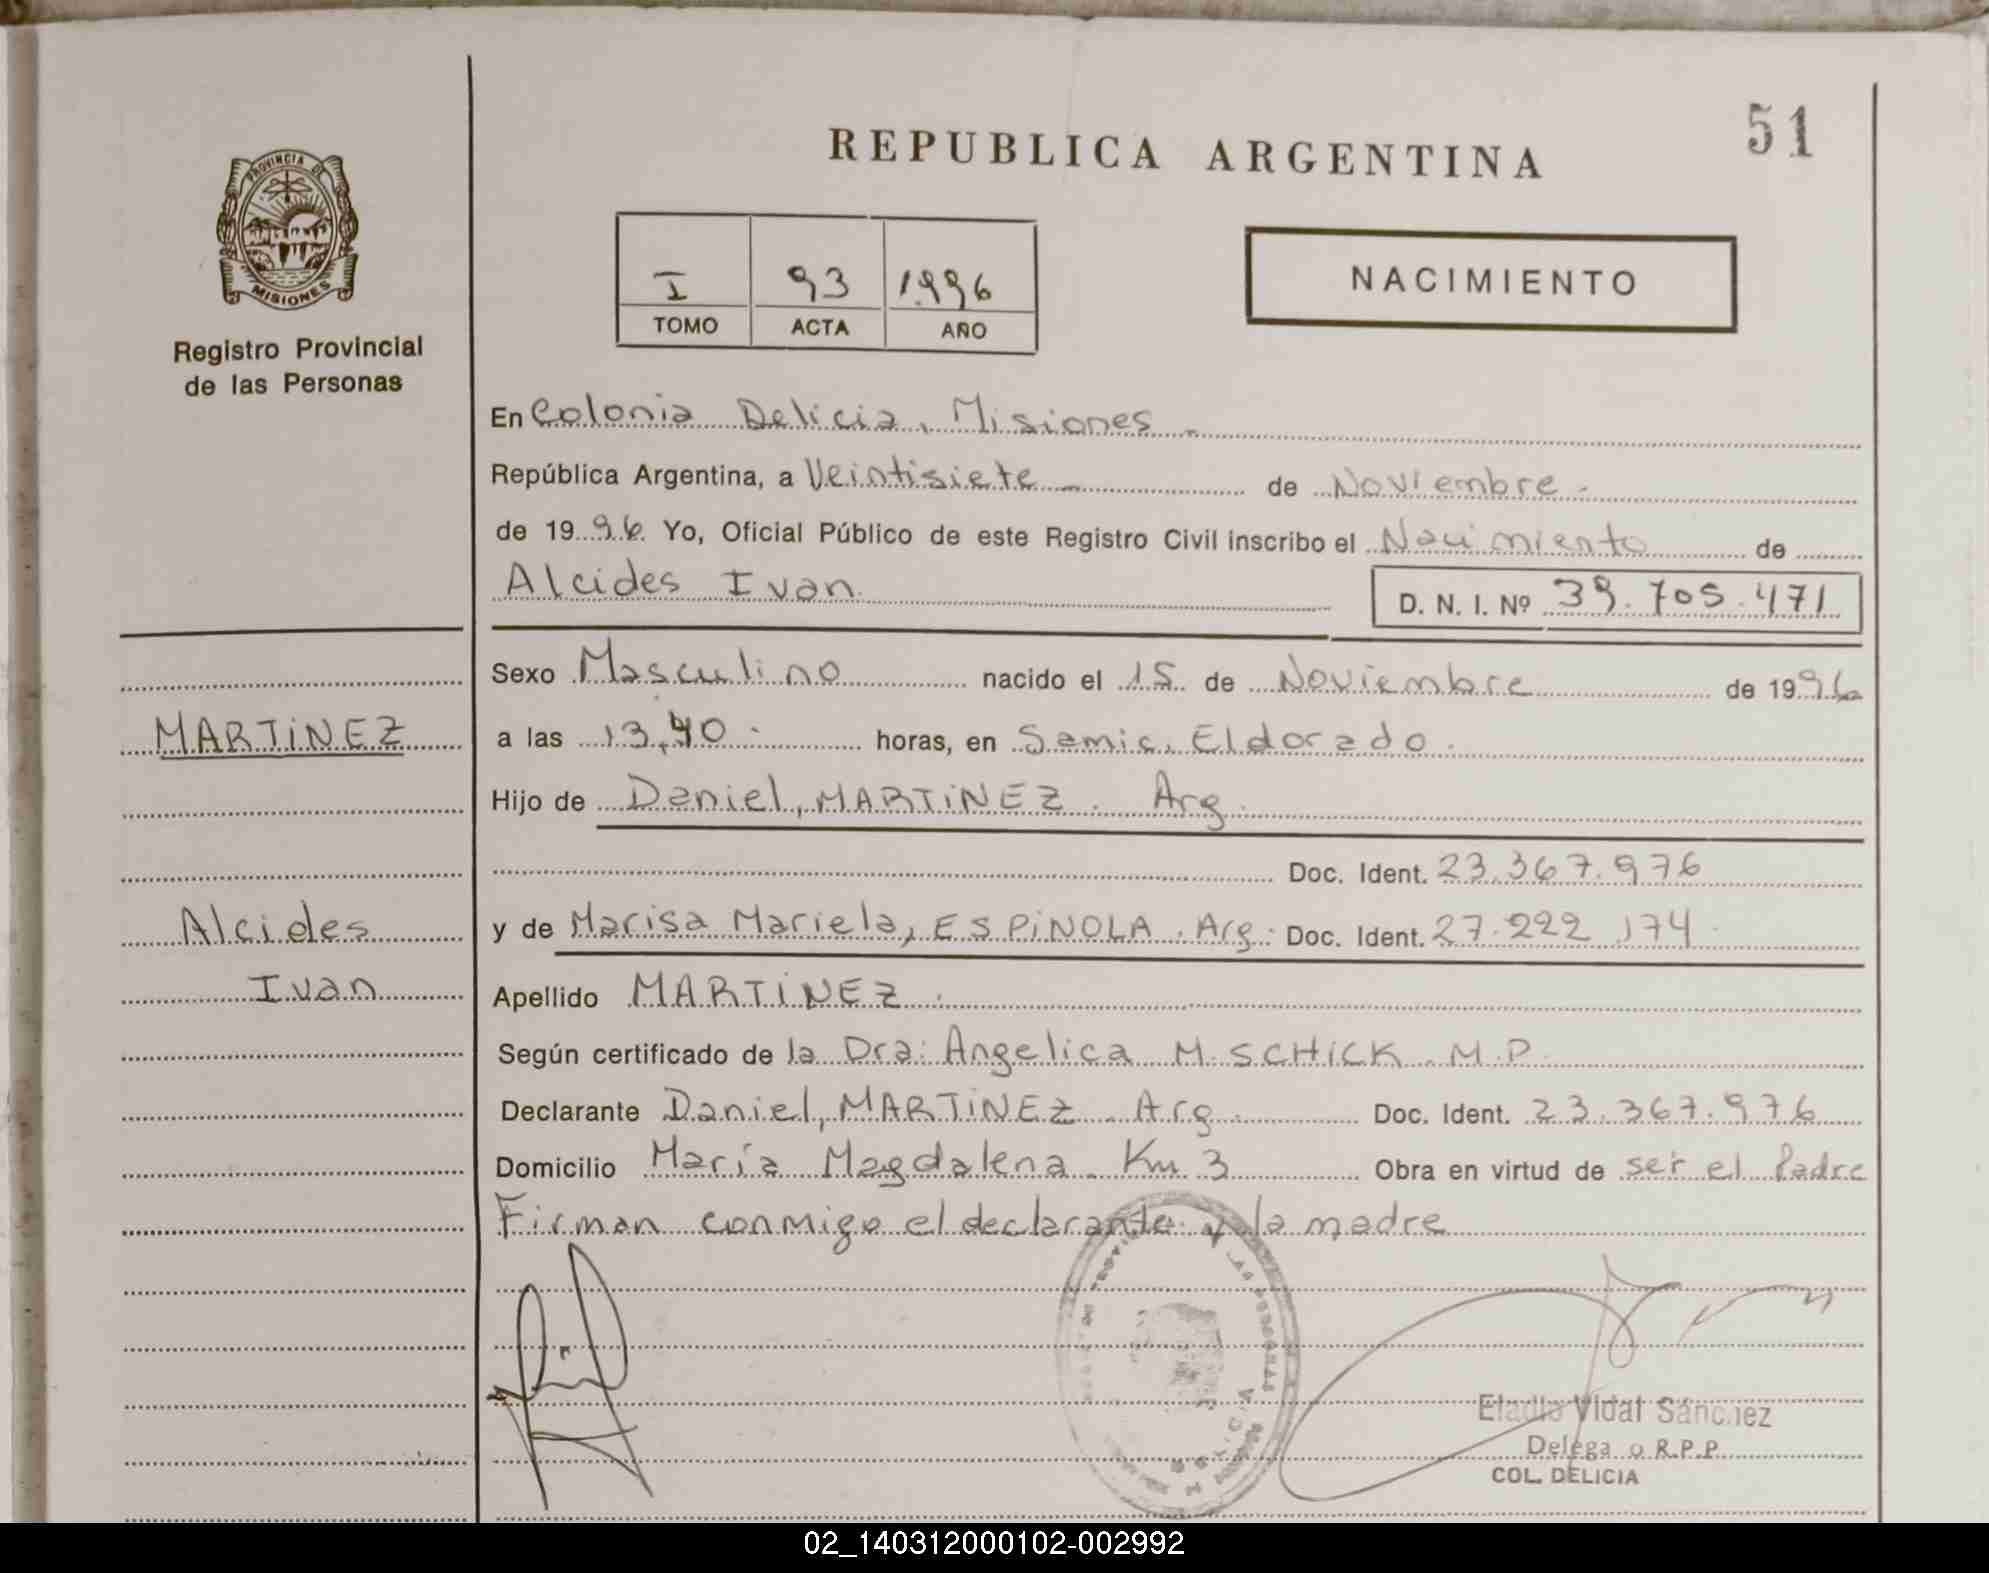 REPUBLICA ARGENTINA
51
PROVINCIA DE
MISIONES
Registro Provincial
de las Personas
I 93 1996
TOMO ACTA AÑO
NACIMIENTO
En Colonia Delicia, Misiones -
República Argentina, a Veintisiete - de Noviembre -
de 1996 Yo, Oficial Público de este Registro Civil inscribo el Nacimiento de
Alcides Ivan
D. N. I. Nº 39.705.471
Sexo Masculino nacido el 15 de Noviembre de 1996
MARTiNEZ
a las 13,40 - horas, en Samic, Eldorado.
Hijo de Daniel, MARTiNEZ. Arg.
Doc. Ident. 23.367.976
Alcides
y de Marisa Mariela, ESPiNOLA. Arg. Doc. Ident. 27.222.174.
Ivan
Apellido MARTiNEZ.
Según certificado de la Dra: Angelica M. SCHiCK. M.P.
Declarante Daniel, MARTiNEZ. Arg. Doc. Ident. 23.367.976
Domicilio María Magdalena. Km 3 Obra en virtud de ser el Padre
Firman conmigo el declarante y la madre
LAS PERSONAS
Eladio Vidal Sánchez
Delega o R.P.P.
COL. DELICIA
02_140312000102-002992